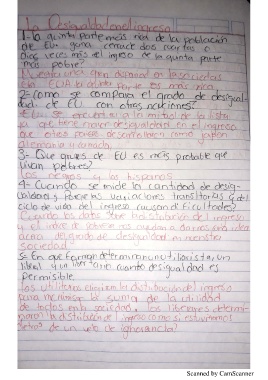 La Desigualdad en el ingreso
1-la quinta parte más rica de la población
de EU gana cerca de dos, cuatro o
diez veces más el ingreso de la quinta parte
más pobre?
2-Como se compara el grado de desigual
dad de EU con otras naciones?
EU se encuentra a la mitad de la lista
que tiene mayor desigualdad en el ingreso
que otros países desarrollados como Japón
Alemania y canada.
3- Que grupos de EU es más probable que
vivan pobres?
los negros y los hispanos
4- Cuando se mide la cantidad de desig-
ualdad y pobreza las variaciones transitorias y del
ciclo de vida del ingreso causan dificultades?
Cuando los datos sobre la distribución del ingreso
y el indice de pobreza nos ayudan a darnos una idea
del grado de desigualdad en nuestra
sociedad.
5- En que forma determinan un utilitarista, un
liberal y un libertario cuanto desigualdad es
permisible
Los utilitarios eligen la distribución del ingreso
para maximizar la suma de la utilidad
de todos en la sociedad, los liberales determi-
nan la distribución del ingreso como si estuvieramos
detras de un velo de ignorancia.
Scanned by CamScanner